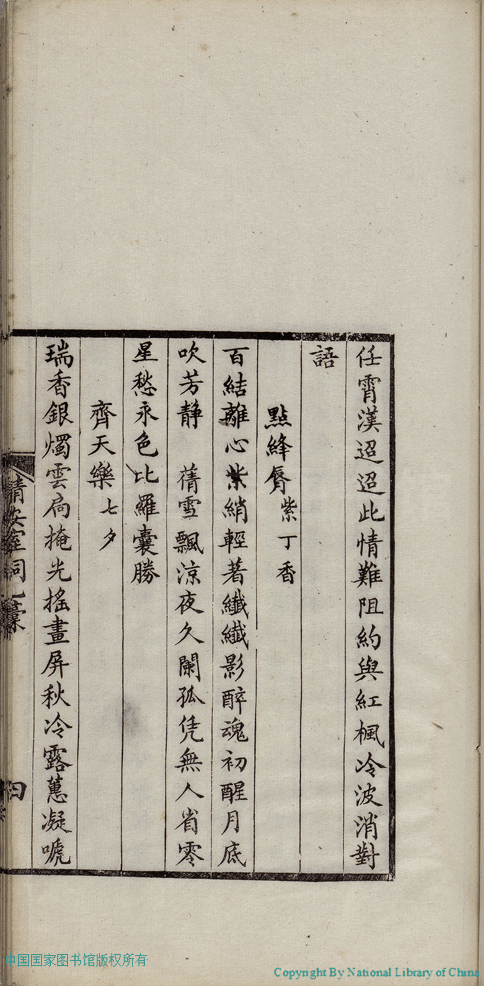 任霄漢迢迢此情難阻約與紅楓冷波消對
語
點絳脣紫丁香
百結離心紫綃輕著纖纖影醉魂初醒月底
吹芳靜 蒨雪飄涼夜久闌孤凭無人省零
星愁永色比羅囊勝
齊天樂七夕
瑞香銀燭雲扃掩光搖畫屏秋冷露蕙凝唬
室詞
中国国家图书馆版权所有
Copyright By National Library of China